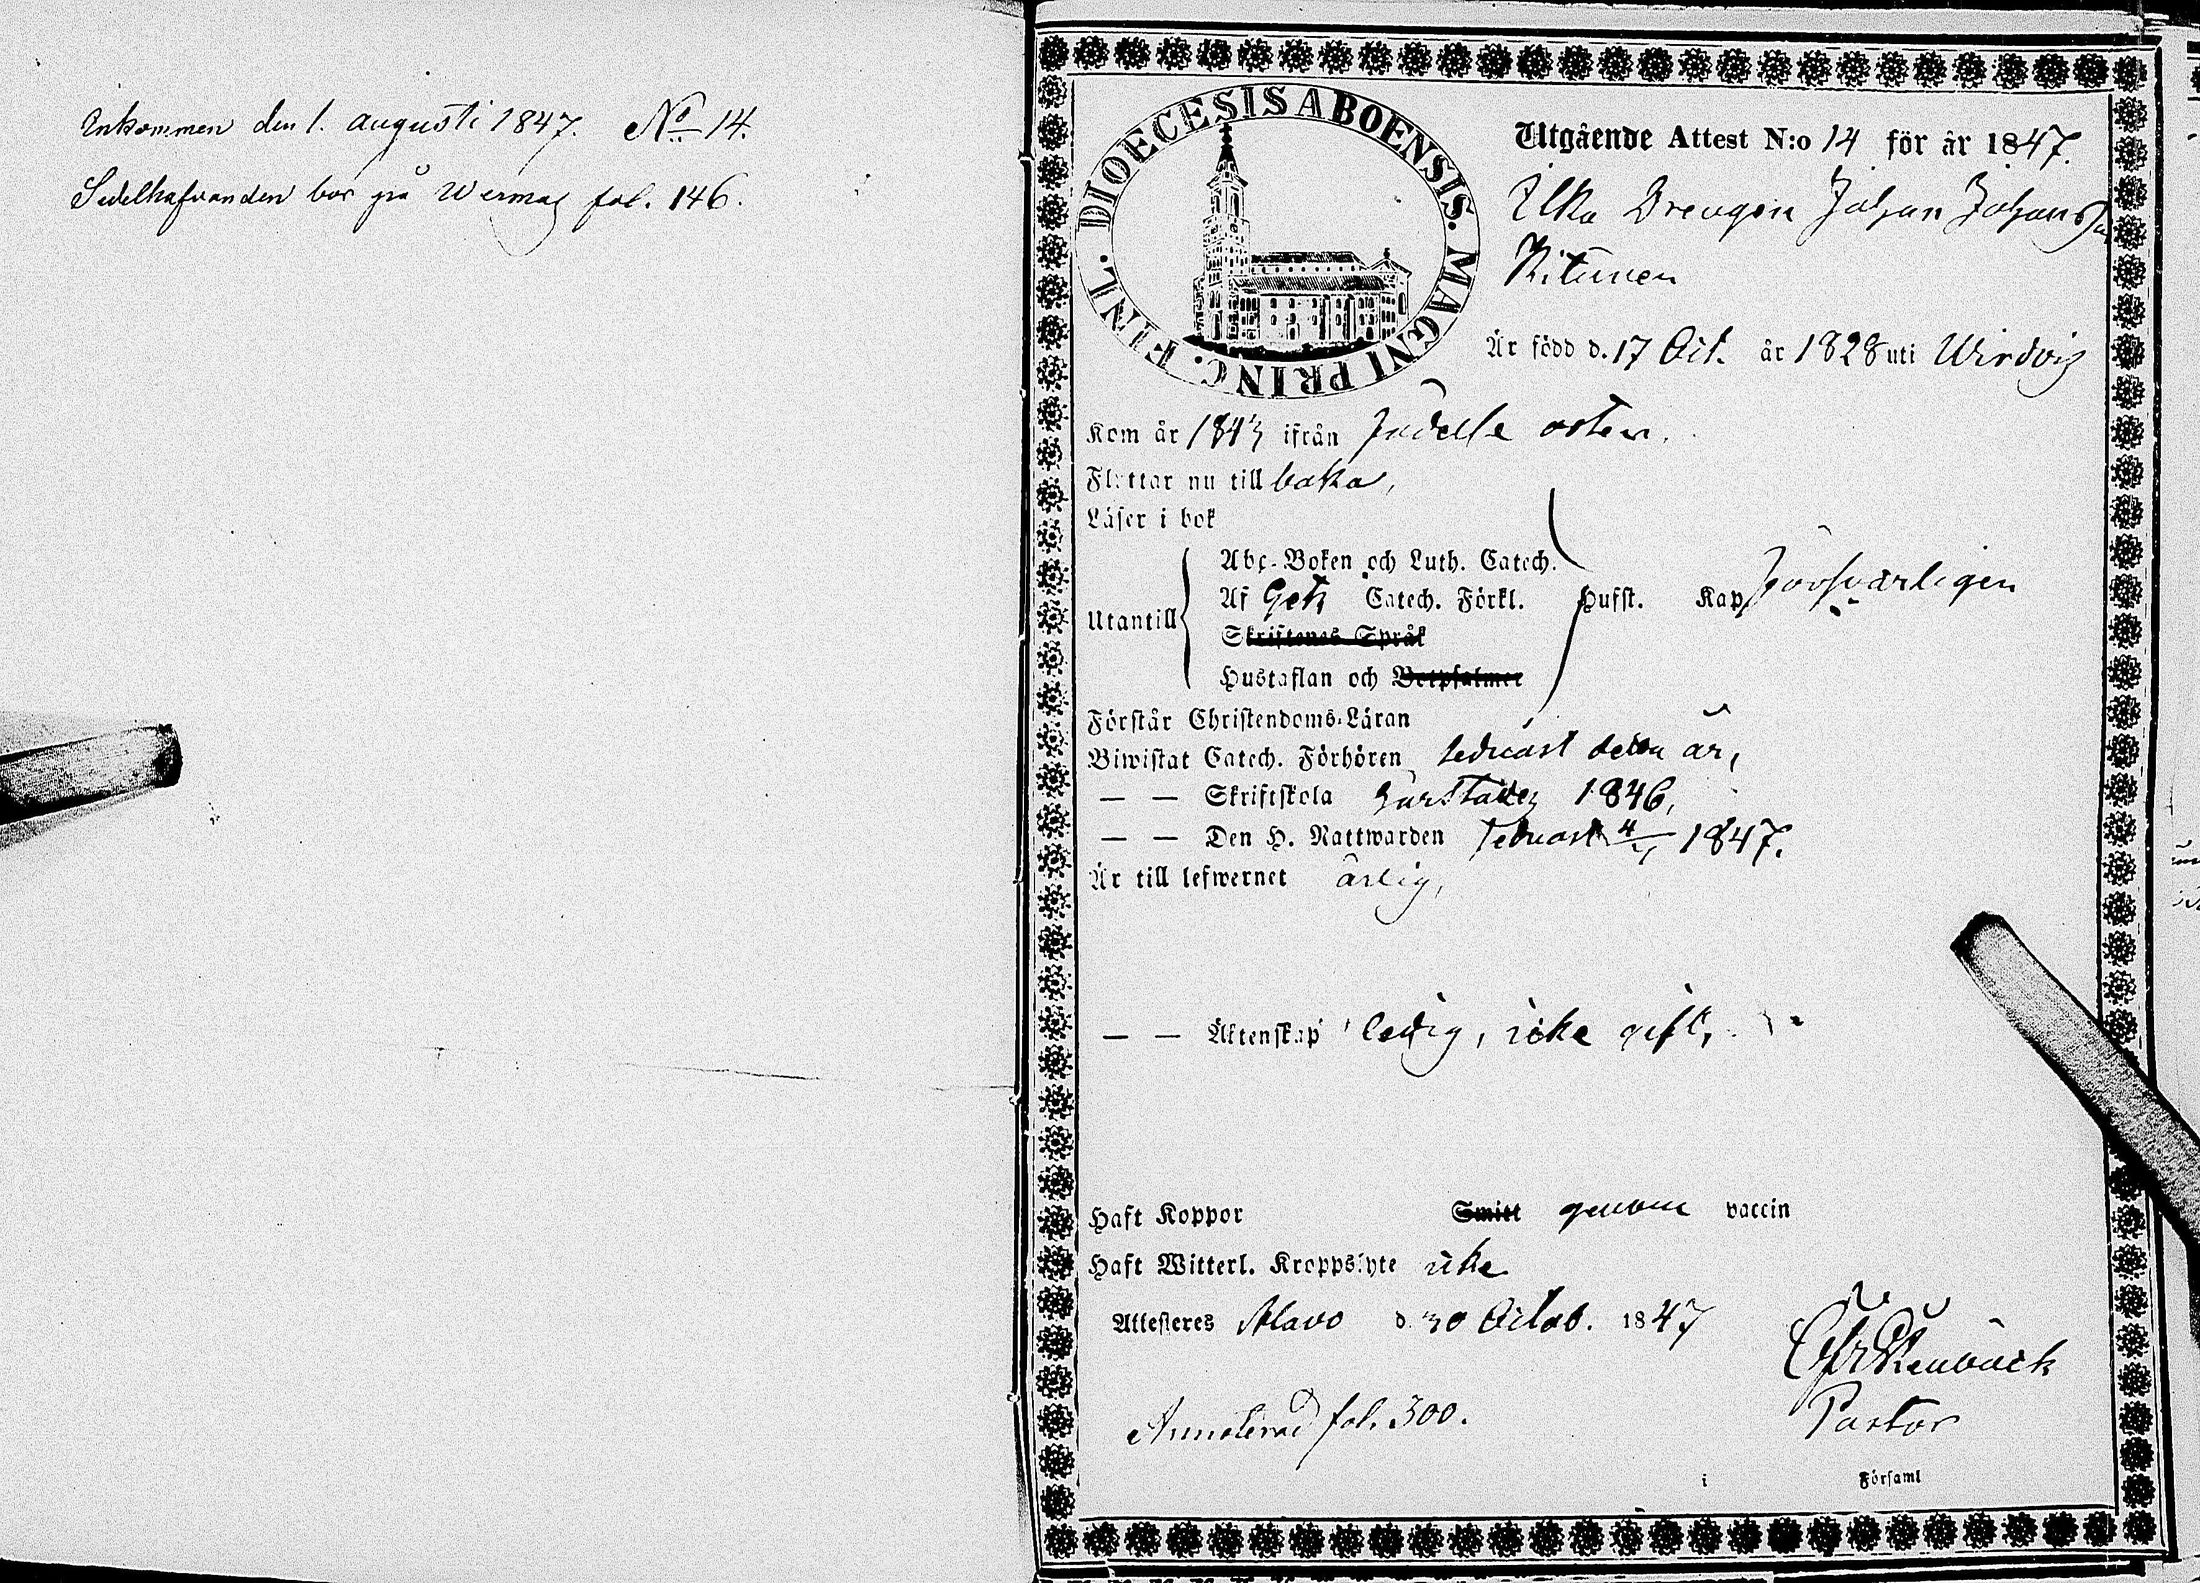 Inkommen den 1. augusti 1847. No 14.
Sedelhafvanden bor på Wermas fol. 146.
DIOECESIS ABOENSIS. MAGNI PRINC. FINL.
Utgående Attest N:o 14 för år 1847.
Drengen Johan Johansson
Ritunen
Är född d. 17 Oct. år 1828 uti Wirdois
Kom år 1843 ifrån orten.
Flyttar nu till baka,
Läser i bok
Utantill
Abc-Boken och Luth. Catech.
Af Catech. Förkl. Husst. Kap försvarligen
Skriftenes Språk
Hustaflan och Botpsalmer
Förstår Christendoms-Läran
Biwistat Catech. Förhören sednast detta år,
— — Skriftskola 1846,
— — Den H. Nattwarden sednast 4/ 1847.
Är till lefwernet ärlig,
— — Äktenskap ledig, icke gift,
Haft Koppor Smitt genom vaccin
Haft Witterl. Kroppslyte icke
Attesteres Alavo d. 30 Octob. 1847
Pastor
Annoterad fol. 300.
i Församl